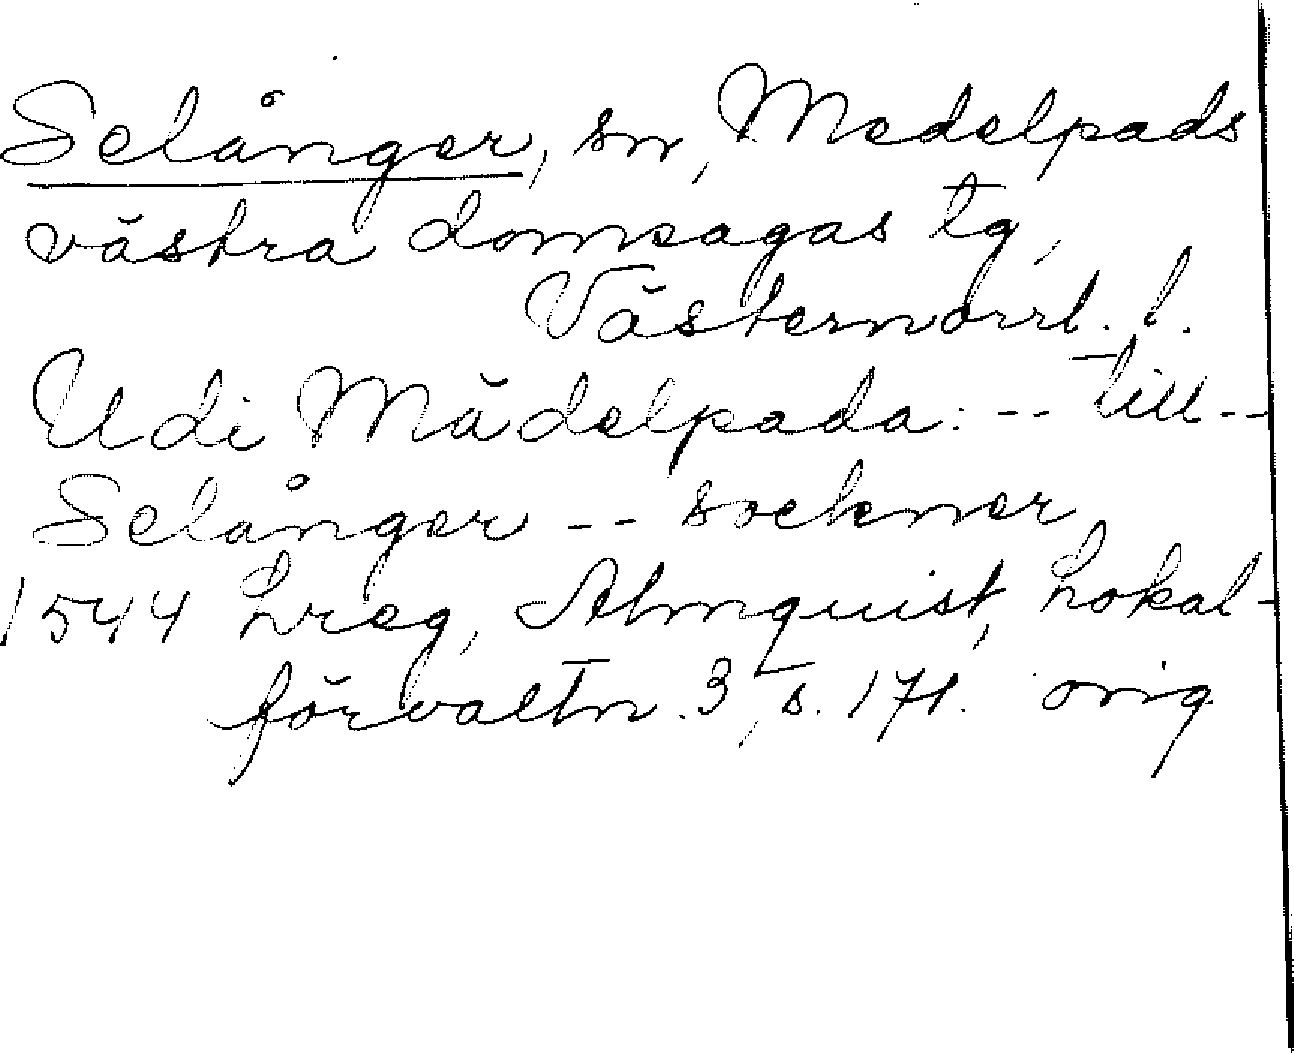 Selånger, sn, Medelpads
västra domsagas tg,
Västernorrl. l.
Udi Mädelpada: -- till --
Selånger -- sockner
1544 Lreg, Almquist, Lokal-
förvaltn. 3, s. 171. orig